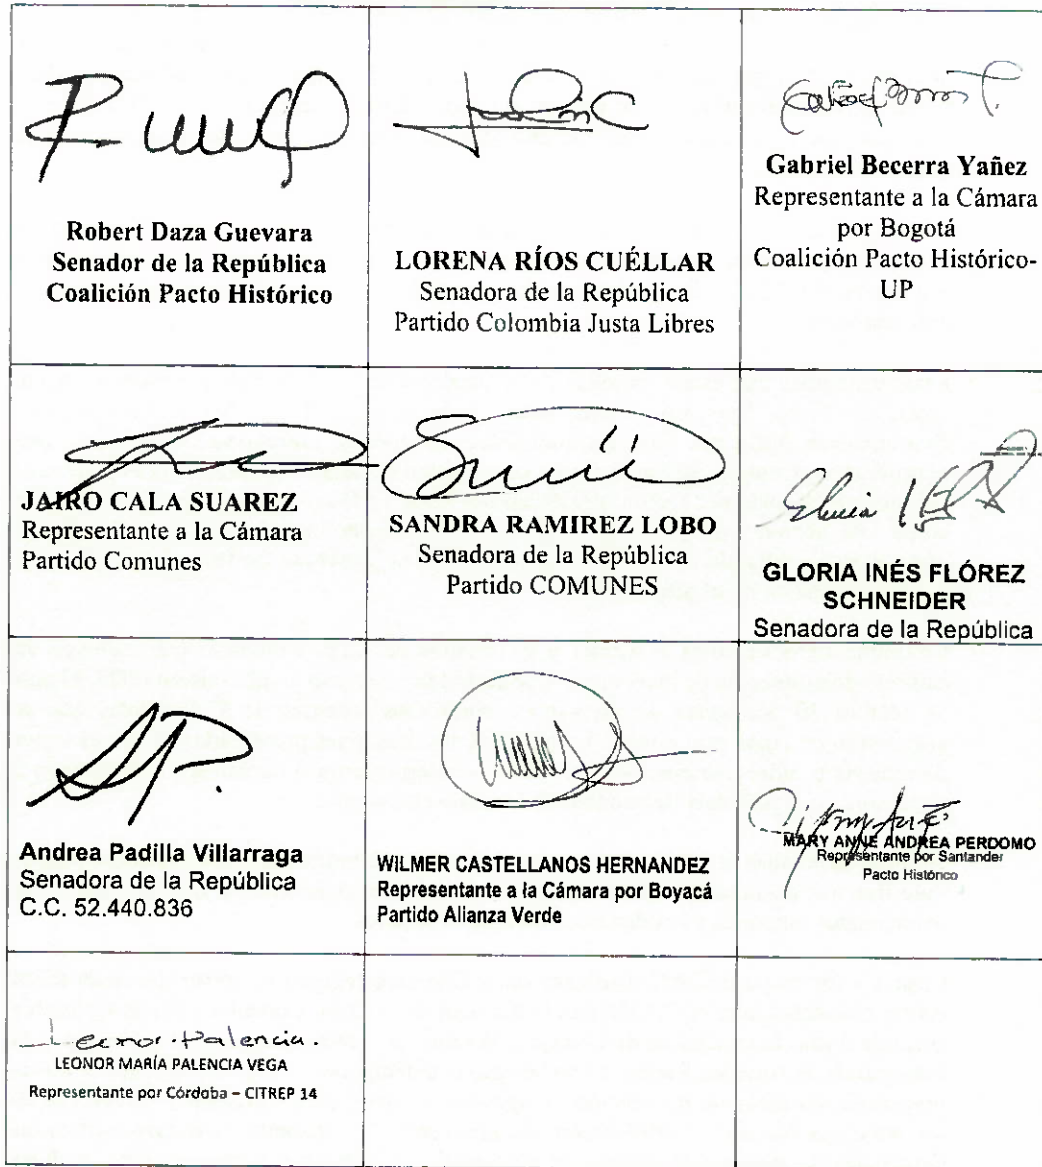 Robert Daza Guevara
Senador de la República
Coalición Pacto Histórico
LORENA RÍOS CUÉLLAR
Senadora de la República
Partido Colombia Justa Libres
Gabriel Becerra Yañez
Representante a la Cámara
por Bogotá
Coalición Pacto Histórico-
UP
JAIRO CALA SUAREZ
Representante a la Cámara
Partido Comunes
SANDRA RAMIREZ LOBO
Senadora de la República
Partido COMUNES
GLORIA INÉS FLÓREZ
SCHNEIDER
Senadora de la República
Andrea Padilla Villarraga
Senadora de la República
C.C. 52.440.836
WILMER CASTELLANOS HERNANDEZ
Representante a la Cámara por Boyacá
Partido Alianza Verde
MARY ANNE ANDREA PERDOMO
Representante por Santander
Pacto Histórico
Leonor Palencia.
LEONOR MARÍA PALENCIA VEGA
Representante por Córdoba – CITREP 14